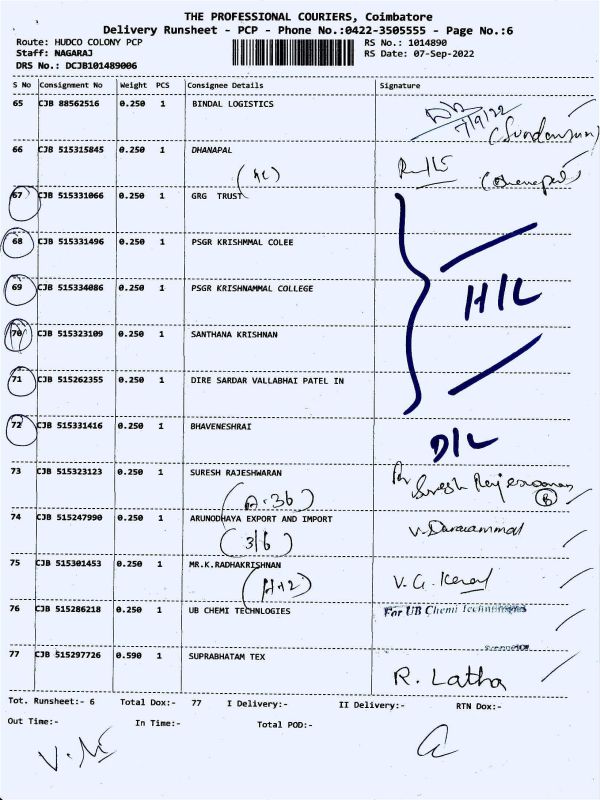 THE PROFESSIONAL COURIERS, Coimbatore
Delivery Runsheet - PCP - Phone No.:0422-3505555 - Page No.:6
Route: HUDCO COLONY PCP RS No.: 1014890
Staff: NAGARAJ RS Date: 07-Sep-2022
DRS No.: DCJB101489006
S No Consignment No Weight PCS Consignee Details Signature
65 CJB 88562516 0.250 1 BINDAL LOGISTICS
7/9/22
66 CJB 515315845 0.250 1 DHANAPAL
67 CJB 515331066 0.250 1 GRG TRUST
68 CJB 515331496 0.250 1 PSGR KRISHMMAL COLEE
69 CJB 515334086 0.250 1 PSGR KRISHNAMMAL COLLEGE
H/L
70 CJB 515323109 0.250 1 SANTHANA KRISHNAN
71 CJB 515262355 0.250 1 DIRE SARDAR VALLABHAI PATEL IN
72 CJB 515331416 0.250 1 BHAVENESHRAI
D/L
73 CJB 515323123 0.250 1 SURESH RAJESHWARAN
74 CJB 515247990 0.250 1 ARUNODHAYA EXPORT AND IMPORT
(3/6)
75 CJB 515301453 0.250 1 MR.K.RADHAKRISHNAN
76 CJB 515286218 0.250 1 UB CHEMI TECHNLOGIES For UB Chemi Technologies
77 CJB 515297726 0.590 1 SUPRABHATAM TEX
R. Latha
Tot. Runsheet:- 6 Total Dox:- 77 I Delivery:- II Delivery:- RTN Dox:-
Out Time:- In Time:- Total POD:-